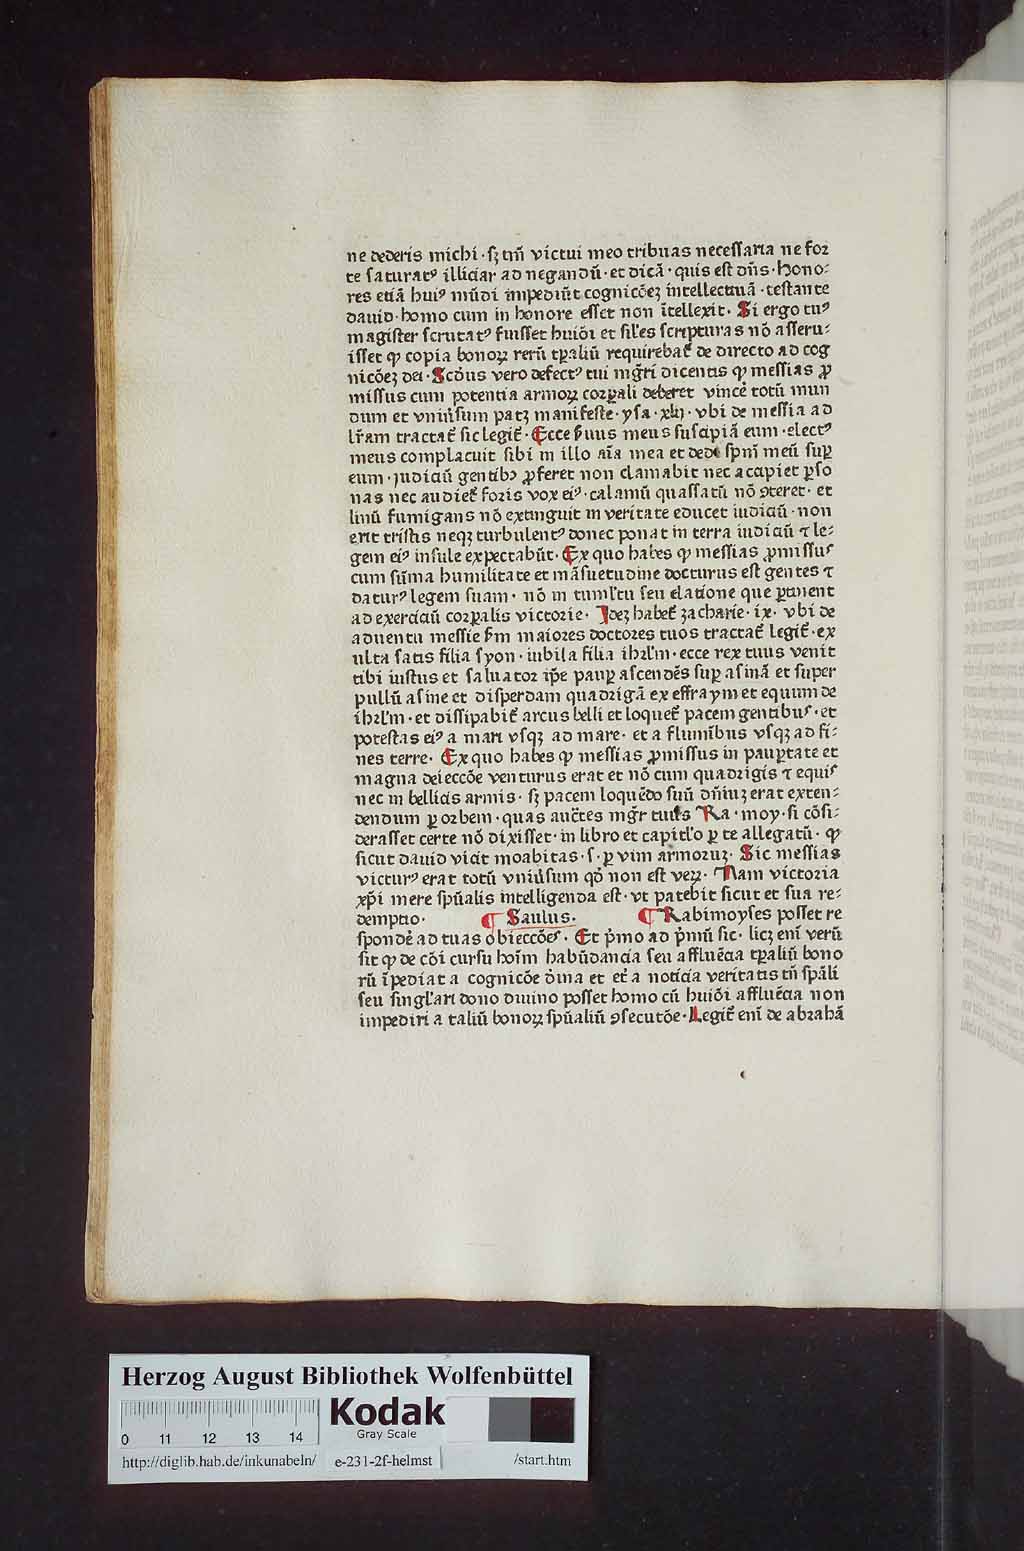 ne dederis michi · sꝫ tm̄ victui meo tribuas necessaria ne for
te saturatꝰ illiciar ad negandū · et dicā · quis est dn̄s · Hono⸗
res etiā huiꝰ mūdi impediūt cognicōeꝫ intellectiuā · testante
dauid · homo cum in honore esset non ītellexit · Si ergo tuꝰ
magister scrutatꝰ fuisset huiōi et sil'es scripturas nō asseru⸗
isset ꝙ copia bonoꝝ rerū tꝑaliū requirebat᷑ de directo ad cog
nicōeꝫ dei · Scd̄us vero defectꝰ tui mgr̄i dicentis ꝙ messias ꝓ
missus cum potentia armoꝝ corꝑali deberet vincē totū mun
dum et vniūsum patꝫ manifeste · ysa · xlij · vbi de messia ad
lr̄am tractat᷑ sic legit᷑ · Ecce s̄uus meus suscipiā eum · electꝰ
meus complacuit sibi in illo aīa mea et dedi spn̄i meū suꝑ
eum · iudiciū gentibꝫ ꝓferet non clamabit nec accipiet ꝑso
nas nec audiet᷑ foris vox eiꝰ · calamū quassatū nō ꝯteret · et
linū fumigans nō extinguit in veritate educet iudiciū · non
erit tristis neqꝫ turbulentꝰ donec ponat in terra iudiciū ⁊ le⸗
gem eiꝰ insule expectabūt · Ex quo habes ꝙ messias ꝓmissus
cum sūma humilitate et māsuetudine docturus est gentes ⁊
daturꝰ legem suam · nō in tuml'tu seu elatione que ꝑtinent
ad exerciciū corꝑalis victorie · Ideꝫ habet᷑ zacharie · ix · vbi de
aduentu messie sm̄ maiores doctores tuos tractat᷑ legit᷑ · ex
ulta satis filia syon · iubila filia ihrl'm · ecce rex tuus venit
tibi iustus et saluator ip̄e pauꝑ ascendēs suꝑ asinā et super
pullū asine et disperdam quadrigā ex effraym et equum de
ihrl'm · et dissipabit᷑ arcus belli et loquet᷑ pacem gentibus · et
potestas eiꝰ a mari vsqꝫ ad mare · et a flumībus vsqꝫ ad fi⸗
nes terre · Ex quo habes ꝙ messias ꝓmissus in pauꝑtate et
magna deieccōe venturus erat et nō cum quadrigis ⁊ equis
nec in bellicis armis · sꝫ pacem loquēdo suū dn̄iuꝫ erat exten⸗
dendum ꝑ orbem · quas auctēs mgr̄ tuus Ra · moy · si cōsi⸗
derasset certe nō dixisset · in libro et capitl'o ꝑ te allegatū · ꝙ
sicut dauid vicit moabitas · s · ꝑ vim armoruꝫ · Sic messias
victurꝰ erat totū vniūsum qd̄ non est veꝝ · Nam victoria
xp̄i mere spūalis intelligenda est · vt patebit sicut et sua re⸗
demptio · ¶ Saulus · ¶ Rabimoyses posset re
spondē ad tuas obieccōes · Et p̄mo ad p̄mū sic · licꝫ enī verū
sit ꝙ de cōi cursu hoīm habūdancia seu affluēcia tꝑaliū bono
rū īpediat a cognicōe d̄ina et et̄a noticia veritatis tn̄ spāli
seu singl'ari dono diuino posset homo cū huiōi affluēcia non
impediri a taliū bonoꝝ spūaliū ꝯsecutōe · Legit᷑ enī de abrahā
Herzog August Bibliothek Wolfenbüttel
Kodak
Gray Scale
0 11 12 13 14
http://diglib.hab.de/inkunabeln/ e-231-2f-helmst /start.htm